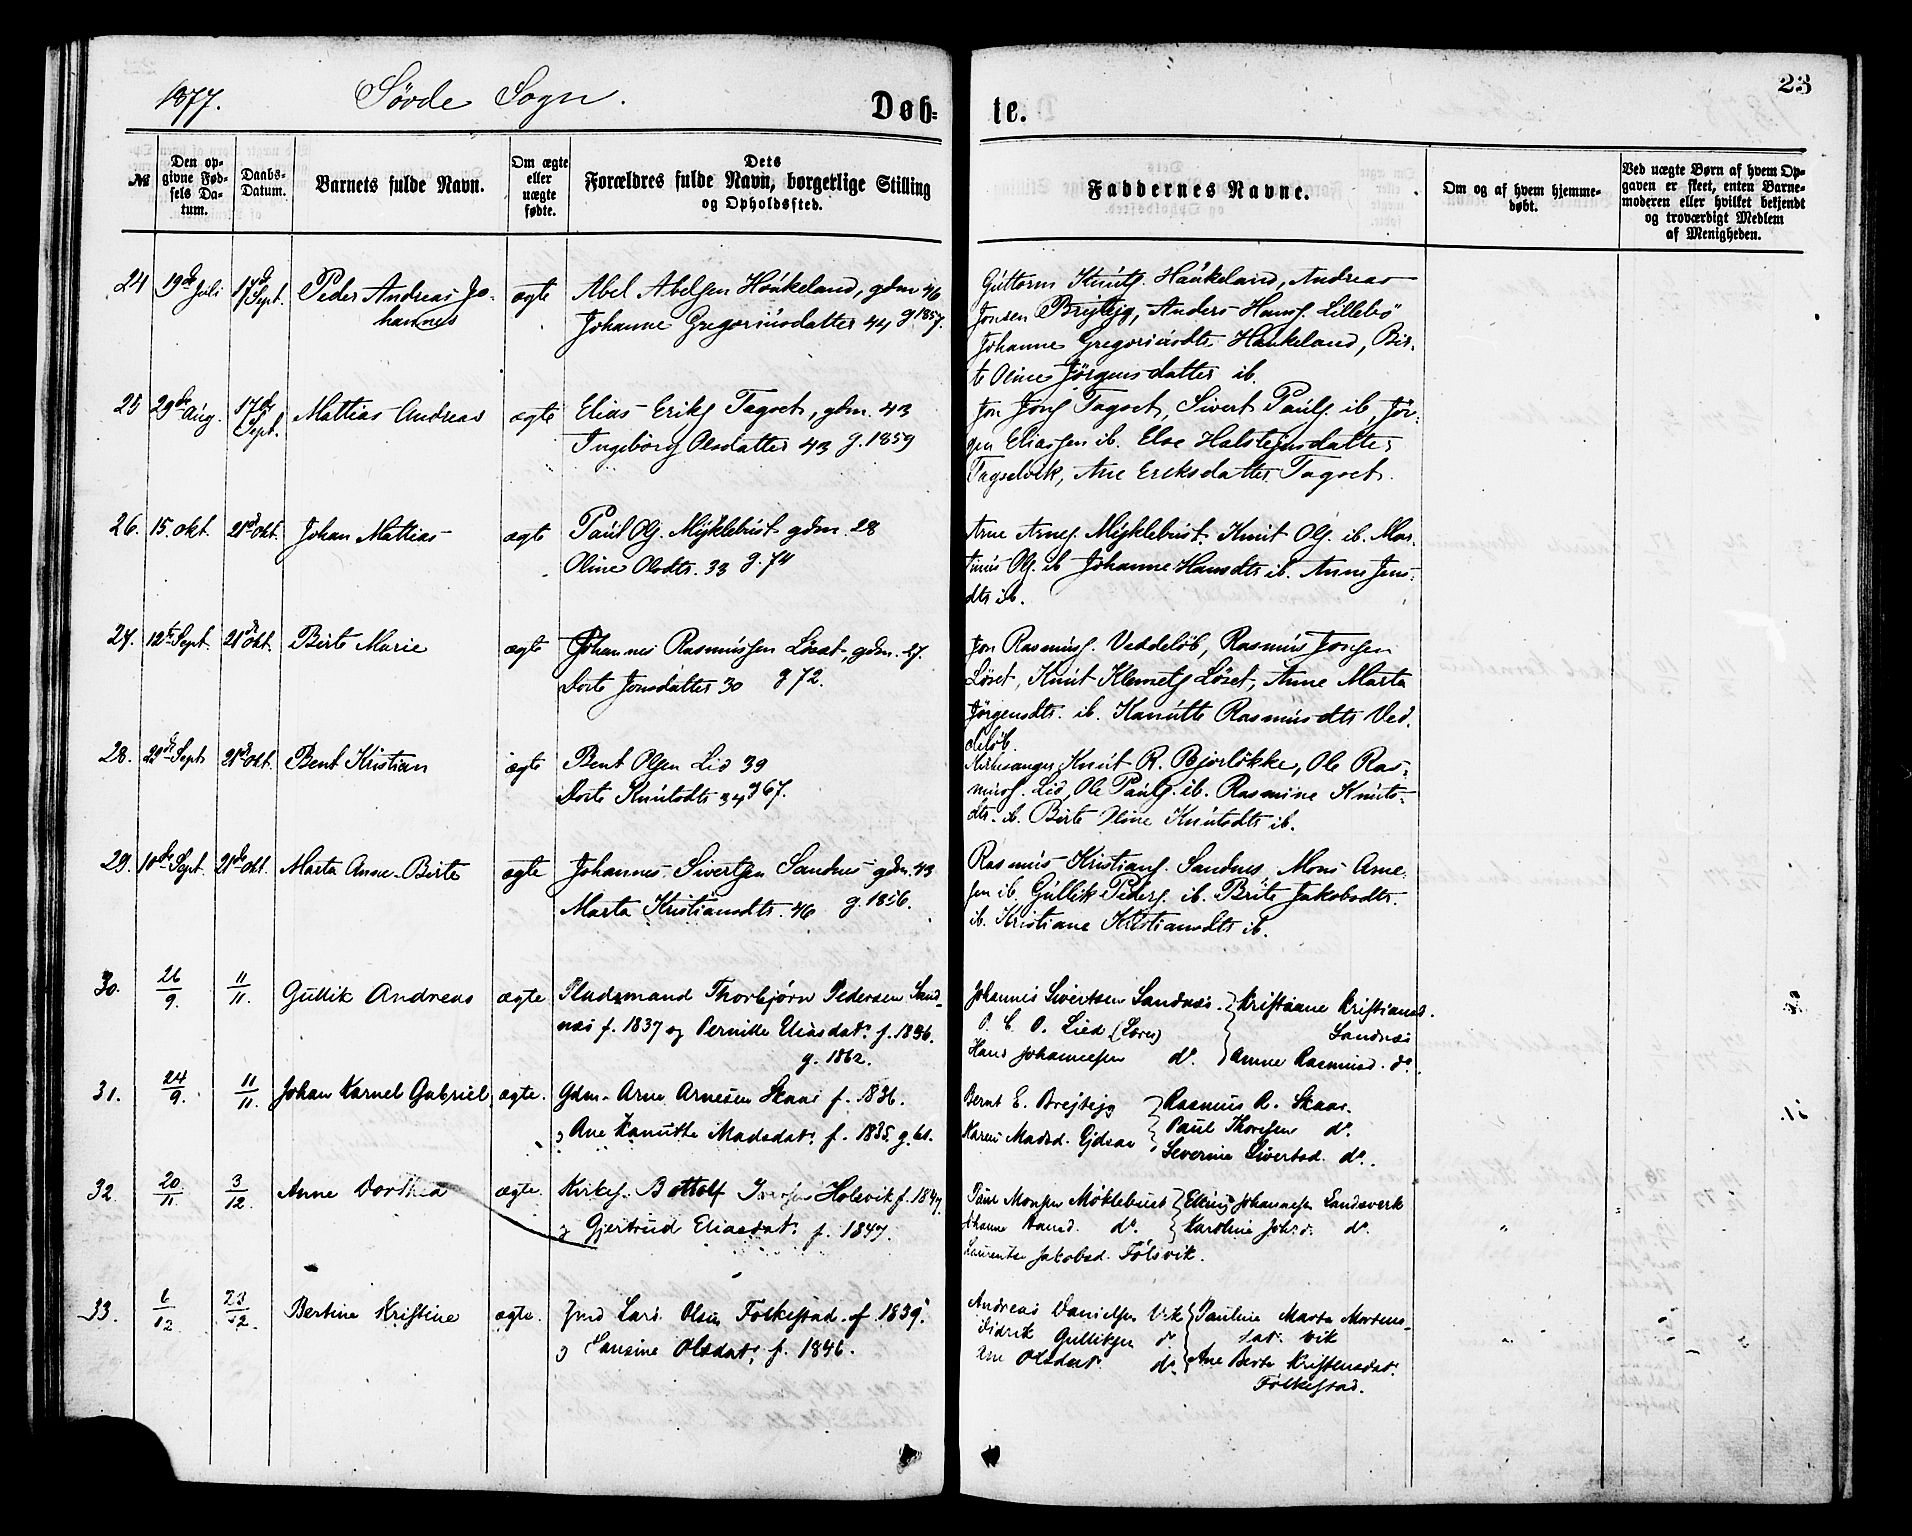 1877. Sövde Sogn. Døb-
te. 23
№
Den opgivne Fødsels Datum.
Daabs-Datum.
Barnets fulde Navn.
Om ægte eller uægte fødte.
Dets Forældres fulde Navn, borgerlige Stilling og Opholdssted.
Faddernes Navne.
Om og af hvem hjemmedøbt.
Ved uægte Børn af hvem Opgaven er skeet, enten Barnemoderen eller hvilket bekjendt og troværdigt Medlem af Menigheden.
24 19de Juli 17d Sept. Peder Andreas Jo- ægte Abel Abelsen Haúkeland, gdm 46
hannes Johanne Gregoriúsdatter 44 g 1857.
Gúttorm Knúts. Haúkeland, Andreas
Jonsen Brejtejg, Anders Hans. Lillebö
Johanne Gregoriúsdtr. Haukeland, Bir-
te Oline Jörgensdatter ib.
25 29de Aúg. 17d Sept. Mattias Andreas ægte Elias Eriks Tagset, gdm. 43
Ingeborg Olsdatter 43 g. 1859
Jon Jons Tagset, Sivert Paúls. ib, Jör-
gen Eliassen ib. Else Halstejnsdatter
Tagselvik, Ane Eriksdatter Tagset.
26. 15. Okt. 21d Okt. Johan Mattias ægte Paúl Ols. Mýklebúst gdm. 28
Oline Olsdtr. 33 g. 74
Arne Arnes. Mýklebúst. Knút Ols. ib. Mar-
tinús Ols. ib Johanne Hansdtr ib. Anne Jens-
dtr ib.
27. 12te Sept. 21d Okt. Birte Marie ægte Johannes Rasmússen Löset, gdm. 27.
Dorte Jonsdatter 30 g 72.
Jon Rasmús. Veddelöb, Rasmús Jonsen
Löset, Knút Klemets Löset, Anne Marta
Jörgensdtr. ib. Kanútte Rasmúsdtr Ved-
delöb.
28. 22de Sept 21d Okt. Bent Kristian ægte Bent Olsen Lid 39
Dorte Knútsdtr 34 g 67.
Kirkesanger Knút R. Bjorlökke, Ole Ras-
mús. Lid, Ole Paúls. ib. Rasmine Knúts-
dtr. ib. Birte Oline Knútsdtr ib.
29. 10de Sept. 21de Okt. Marta Anne-Birte ægte Johannes Sivertsen Sandnes gdm. 43
Marta Kristiansdtr. 46 g. 1856.
Rasmús Kristians. Sandnes, Mons Arne-
sen ib. Gúllik Peders. ib. Brite Jakobsdtr.
ib. Kristiane Kristiansdtr ib.
30. 26/9. 11/11. Gullik Andreas ægte Pladsmand Thorbjørn Pedersen Sand-
næs f. 1837 og Pernille Eliasdatr. f. 1836.
g. 1862.
Johannes Sivertsen Sandnæs. Kristiane Kristiansd.
O. C. O. Lied Sandnæs
Hans Johannesen do. Anne Rasmusd. do.
31. 24/9. 11/11. Johan Karnel Gabriel, ægte. Gdm. Arne Arnesen Skaar f. 1836.
og Ane Kanutte Madsdatr. f. 1835. g. 61.
Bernt E. Brejtejg Rasmus R. Skaar.
Karen Madsd. Paul Thoresen do.
Severine Sivertsd. do.
32. 20/11. 3/12. Anne Dorthea ægte. Kirkes. Bottolf Iversen Holsvik f. 1847.
og Gjertrud Eliasdatr. f. 1847.
Paul Monsen Møklebust Johannesen Landsverk
do. Karoline do.
Jakobsd. Følsvik.
33. 6/12 23/12. Bertine Kristine ægte. Gmd Lars Olsen Folkestad f. 1839.
og Olsdatr. f. 1846.
Andreas Danielsen Vik Pauline Marta Mortens-
Didrik Gulliksen do. dat. Vik
Olsdatr. do. Ane Berte Kristensdatr.
Folkestad.